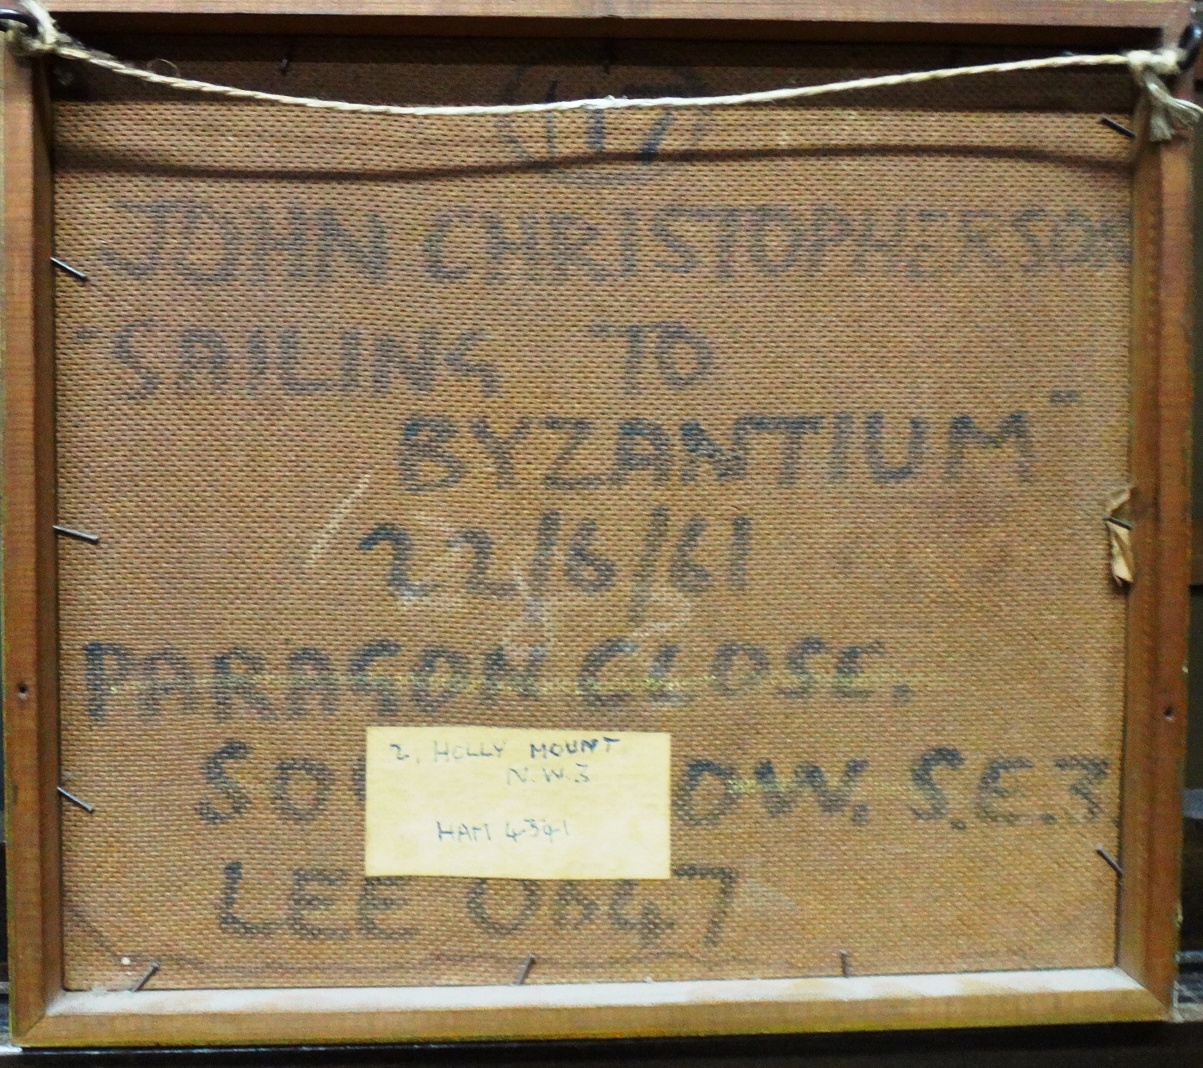 17
JOHN CHRISTOPHERSON
"SAILING TO
BYZANTIUM"
22/6/61
PARAGON CLOSE.
SOU OW. S.E.3
2, HOLLY MOUNT
N.W.3
HAM 4341
LEE 0647